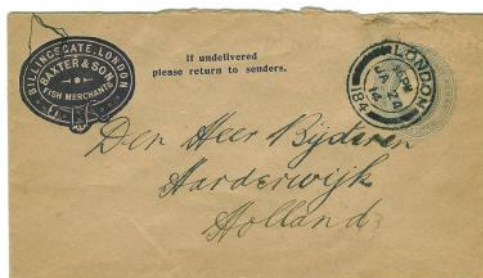 BILLINGSGATE. LONDON
BAXTER & SON
FISH MERCHANTS
If undelivered
please return to senders.
LONDON
JA 24
14
184
Den Heer Bijderen
Harderwijk
Holland